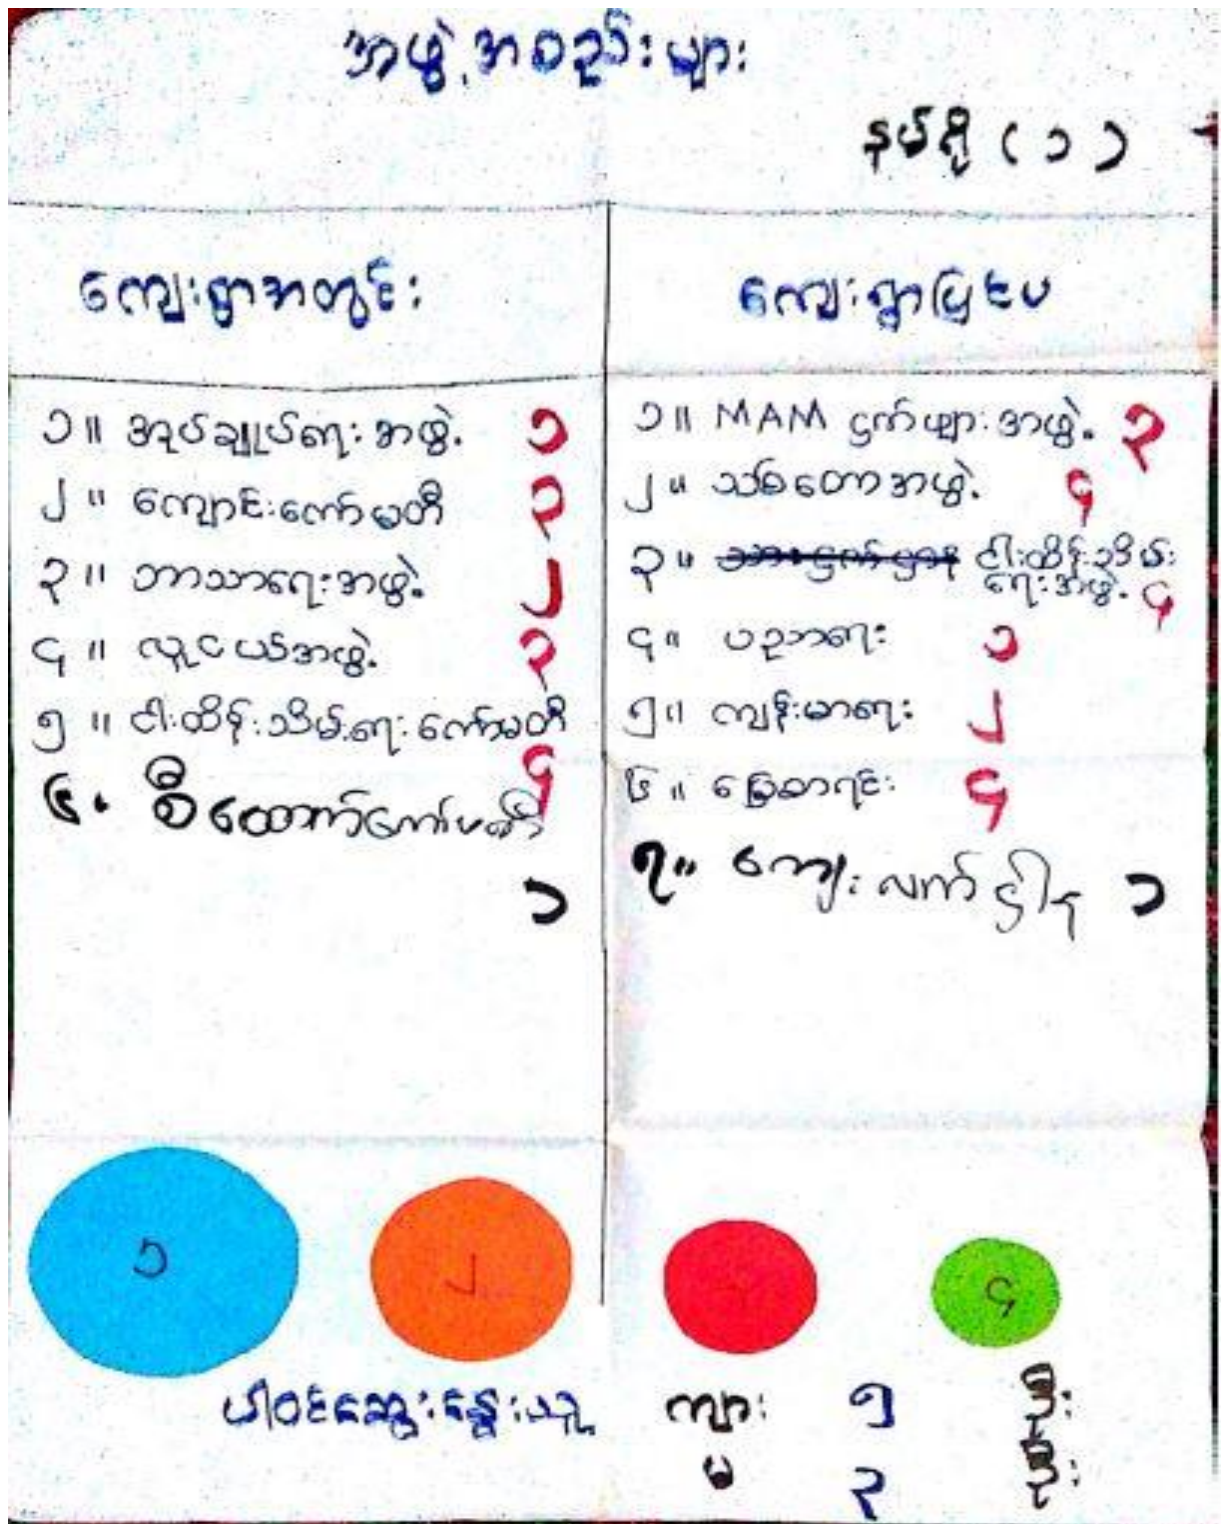 အဖွဲ့အစည်းများ
နမ်စို (၁)
ကျေးရွာအတွင်း
ကျေးရွာပြင်ပ
၁။ အုပ်ချုပ်ရေးအဖွဲ့ ၁
၂။ ကျောင်းကော်မတီ ၃
၃။ ဘာသာရေးအဖွဲ့ ၂
၄။ လူငယ်အဖွဲ့ ၃
၅။ ငါးထိန်းသိမ်းရေးကော်မတီ
၄
၆။ စီထောက်ကော်မတီ
၁
၁။ MAM ငှက်များအဖွဲ့ ၃
၂။ သစ်တောအဖွဲ့ ၄
၃။ ငါးထိန်းသိမ်း
ရေးအဖွဲ့ ၄
၄။ ပညာရေး ၁
၅။ ကျန်းမာရေး ၂
၆။ မြေစာရင်း ၄
၇။ ကျေးလက် ဌာန ၁
၁
၂
၄
ပါဝင်ဆွေးနွေးသူ ကျား ၅ ဦး
မ ၃ ဦး